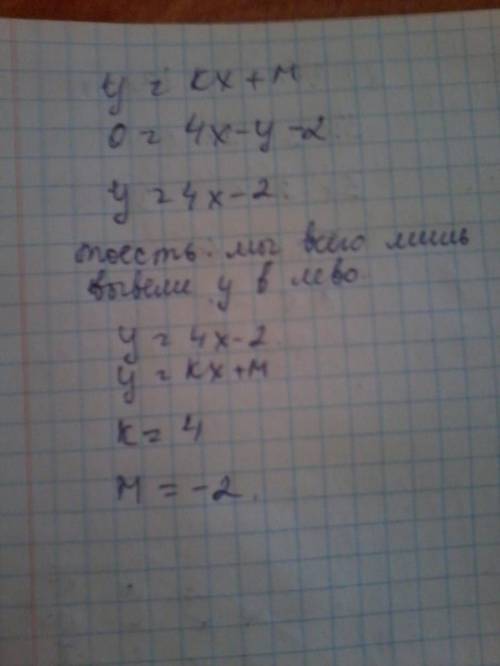 y = kx + м
0 = 4x - y - 2
y = 4x - 2.
тоесть мы всего лишь
вывели y в лево
y = 4x - 2
y = kx + м
k = 4
м = -2.